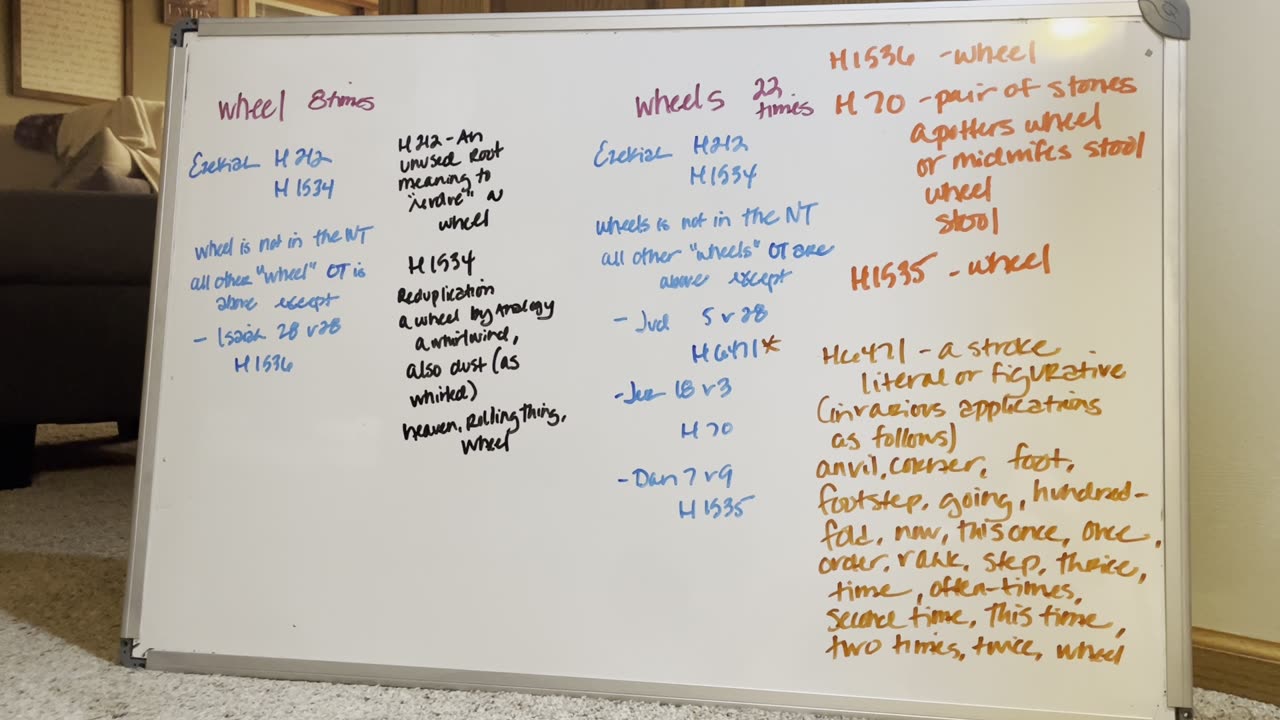 wheel 8 times
Ezekiel H 212
H 1534
wheel is not in the NT
all other "wheel" OT is
above except
- Isaiah 28 v 28
H 1536
H 212 - An
unused Root
meaning to
"revolve" a
wheel
H 1534
Reduplication
a wheel by Analogy
a whirlwind,
also dust (as
whirled)
heaven, Rolling thing,
wheel
wheels 22
times
Ezekiel H 212
H 1534
wheels is not in the NT
all other "wheels" OT are
above except
- Jud 5 v 28
H 6471*
- Jer 18 v 3
H 70
- Dan 7 v 9
H 1535
H 1536 - wheel
H 70 - pair of stones
a potters wheel
or midwifes stool
wheel
stool
H 1535 - wheel
H 6471 - a stroke
literal or figurative
(in various applications
as follows)
anvil, corner, foot,
footstep, going, hundred-
fold, now, this once, once,
order, rank, step, thrice,
time, often-times,
second time, this time,
two times, twice, wheel